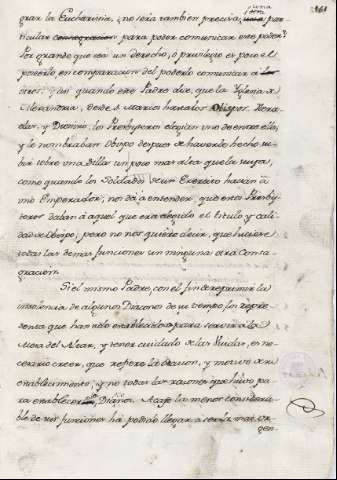 161
grar la Eucharistia, ¿no será tambien precisa una par-
ticular consagracion para poder comunicar este poder?
Por grande que sea un derecho, o privilegio es poco el
poseerlo en comparacion del poderlo comunicar a los
otros. Y asi quando este Padre dice, que la Yglesia de
Alexandria, desde S. Marcos hasta los Obispos Hera-
clas, y Dionisio, los Presbyteros elegian uno de entre ellos,
y le nombraban Obispo despues de haverlo hecho su-
bir sobre una silla un poco mas alta que la suya,
como quando los Soldados de un Exercito hacen à
uno Emperador; nos dá a entender que estos Presby-
teros daban á aquel que era elegido el titulo y cali-
dad de Obispo, pero no nos quiere decir, que hiciese
todas las demas funciones sin ninguna otra Consa-
gracion.
Si el mismo Padre, con el fin de reprimir la
insolencia de algunos Diaconos de su tiempo los repre-
senta que han sido establecidos para servir a la
Mesa del Altar, y tener cuidado de las Viudas, es ne-
cesario creer, que refiere la ocasion, y motivo de su
establecimiento; y no todas las razones que hubo pa-
ra establecer los Diaconos. Acaso la menos considera-
ble de sus funciones há podido llegar á ser la mas or-
gen-